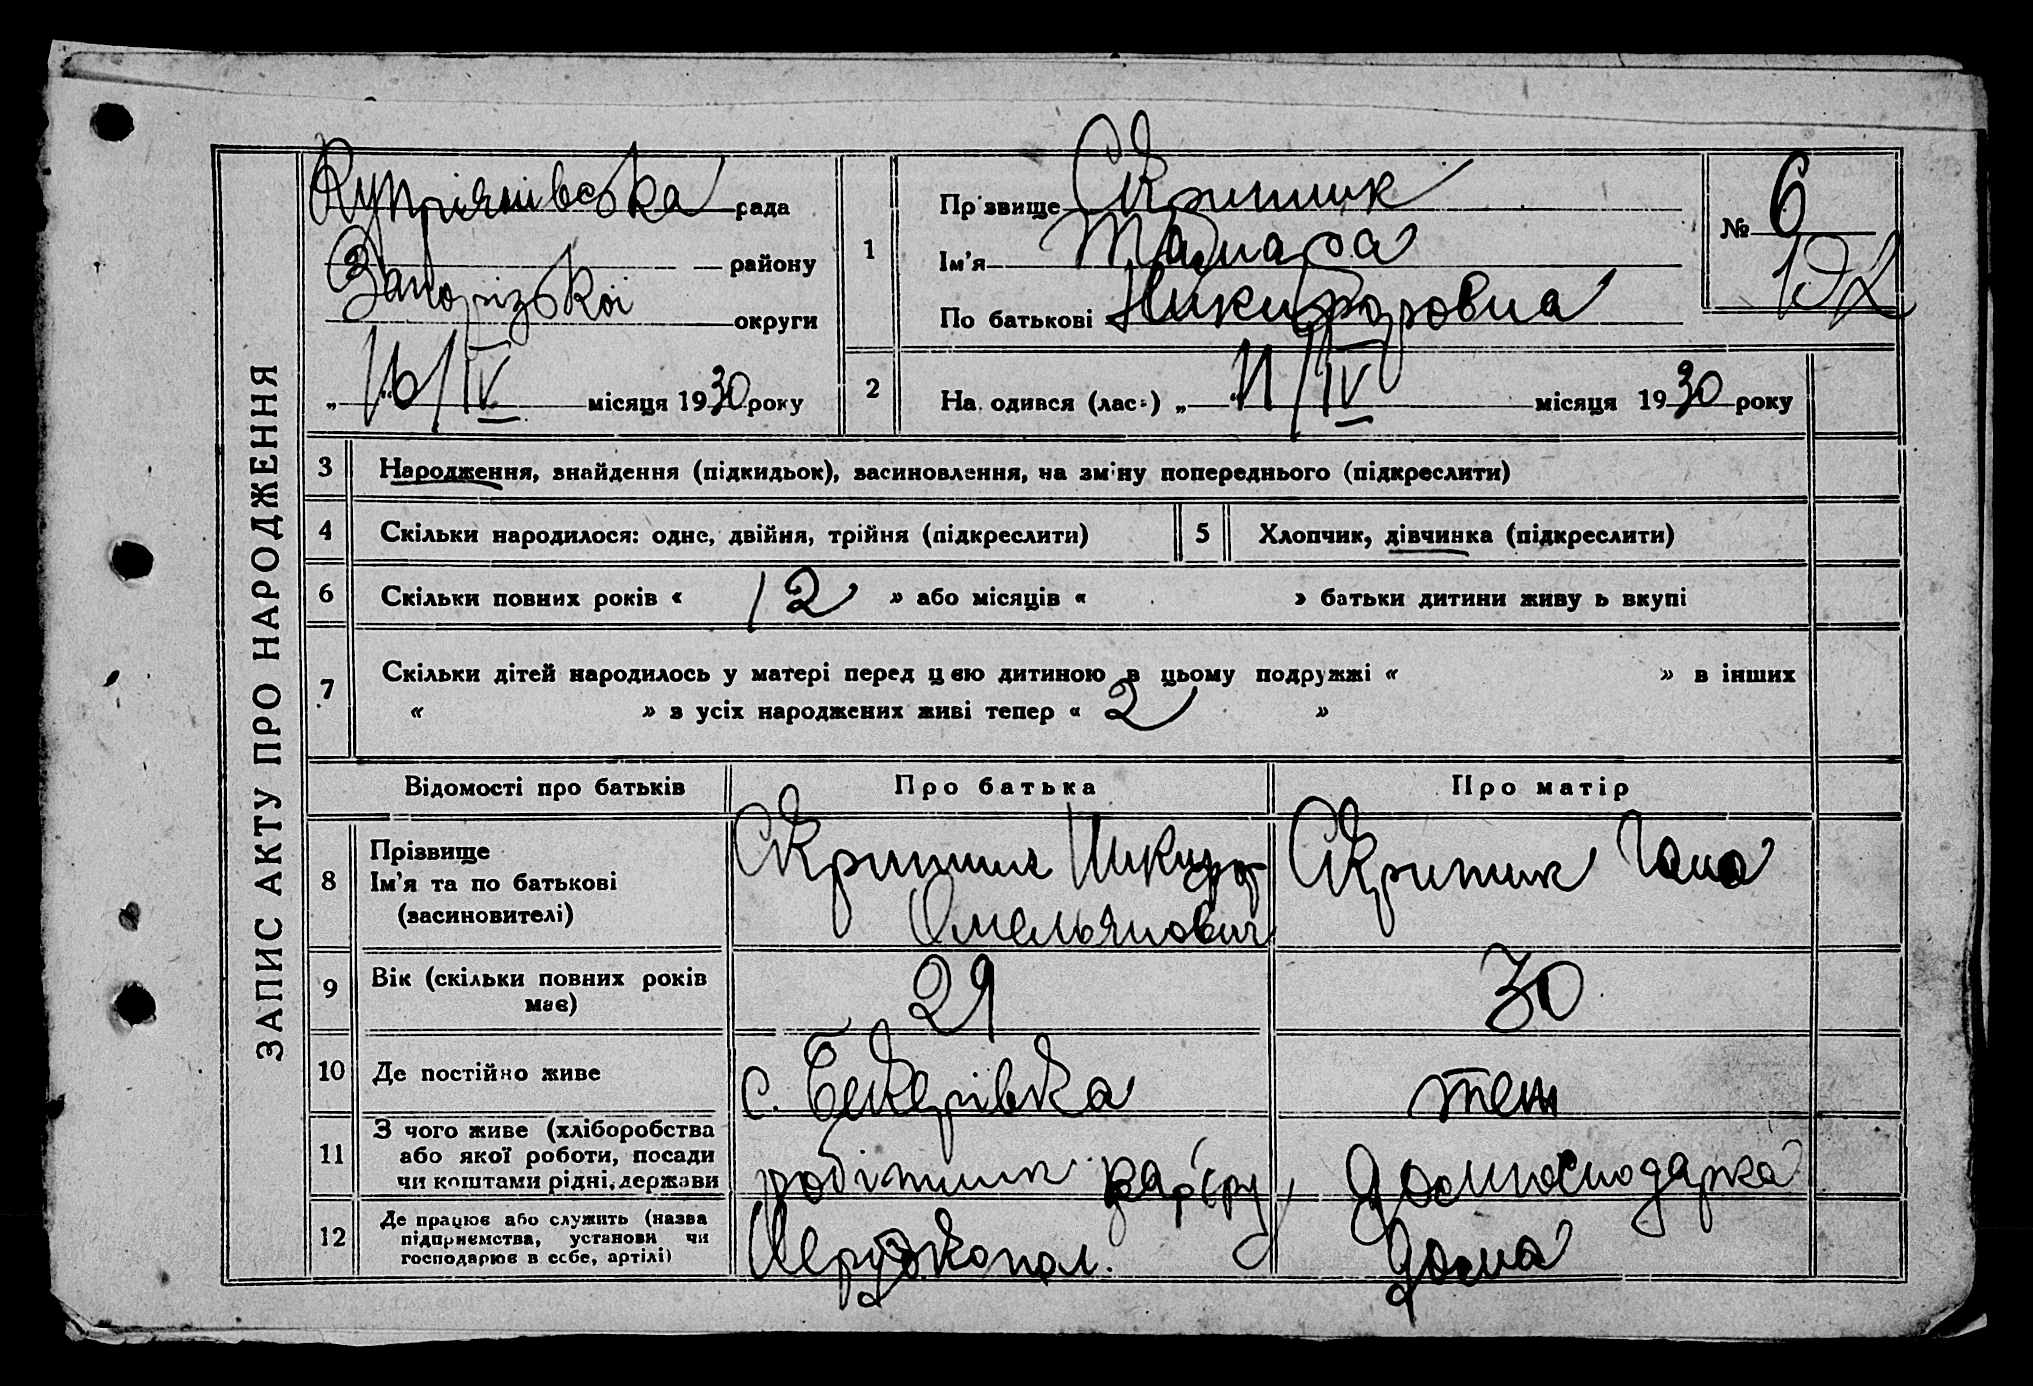 ЗАПИС АКТУ ПРО НАРОДЖЕННЯ
Купріянівська рада
району
Запорізької округи
„ 16/IV “ місяця 1930 року
1
Прізвище Скрипник
Ім'я Тамара
По батькові Никифоровна
№ 6
2
Народився (лась) „ 11/IV “ місяця 1930 року
3 Народження, знайдення (підкидьок), засиновлення, на зміну попереднього (підкреслити)
4 Скільки народилося: одне, двійня, трійня (підкреслити)
5 Хлопчик, дівчинка (підкреслити)
6 Скільки повних років « 12 » або місяців « » батьки дитини живуть вкупі
7 Скільки дітей народилось у матері перед цією дитиною в цьому подружжі « » в інших
« » з усіх народжених живі тепер « 2 »
Відомості про батьків Про батька Про матір
8 Прізвище
Ім'я та по батькові
(засиновителі)
Скрипник Никифор
Омельянович
Скрипник Гана
9 Вік (скільки повних років
має)
29 30
10 Де постійно живе с. Бекерівка теж
11 З чого живе (хліборобства
або якої роботи, посади
чи коштами рідні, держави
робітник кар'єру, домогосподарка
12 Де працює або служить (назва
підприємства, установи чи
господарює в себе, артілі)
дома